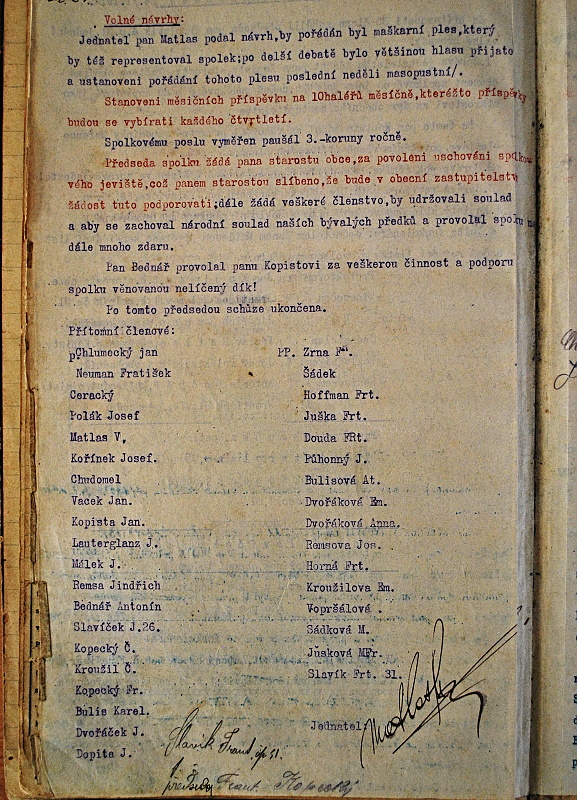 Volné návrhy:
Jednatel pan Matlas podal návrh,by pořádán byl maškarní ples,který
by též representoval spolek;po delší debatě bylo většinou hlasu přijato
a ustanoveni pořádání tohoto plesu poslední neděli masopustní/.
Stanoveni měsičních příspěvku na 10haléřů měsíčně,kteréžto příspěvky
budou se vybírati každého čtvrtletí.
Spolkovému poslu vyměřen paušál 3.-koruny ročně.
Předseda spolku žádá pana starostu obce,za povoleni uschováni spolko
vého jeviště,což panem starostou slíbeno,že bude v obecní zastupitelstvu
žádost tuto podporovati;dále žádá veškeré členstvo,by udržovali soulad
a aby se zachoval národní soulad našich bývalých předků a provolal spolku
dále mnoho zdaru.
Pan Bednář provolal panu Kopistovi za veškerou činnost a podporu
spolku věnovanou nelíčený dík!
Po tomto předsedou schůze ukončena.
Přítomní členové:
pChlumecký jan PP. Zrna Fr.
Neuman Fratišek Šádek
Ceracký Hoffman Frt.
Polák Josef Juška Frt.
Matlas V, Douda FRt.
Kořínek Josef. Půhonný J.
Chudomel Bulisová At.
Vacek Jan. Dvořáková Em.
Kopista Jan. Dvořáková Anna.
Lauterglanz J. Remsova Jos.
Málek J. Horná Frt.
Remsa Jindřich Kroužilova Em.
Bednář Antonín Vopršálová .
Slavíček J.26. Sádková M.
Kopecký Č. Jusková MFr.
Kroužil Č. Slavík Frt. 31.
Kopecký Fr.
Bulis Karel.
Dvořáček J. Jednatel
Dopita J. Slavík Frant čp 51.
předseda Frant. Kopecký